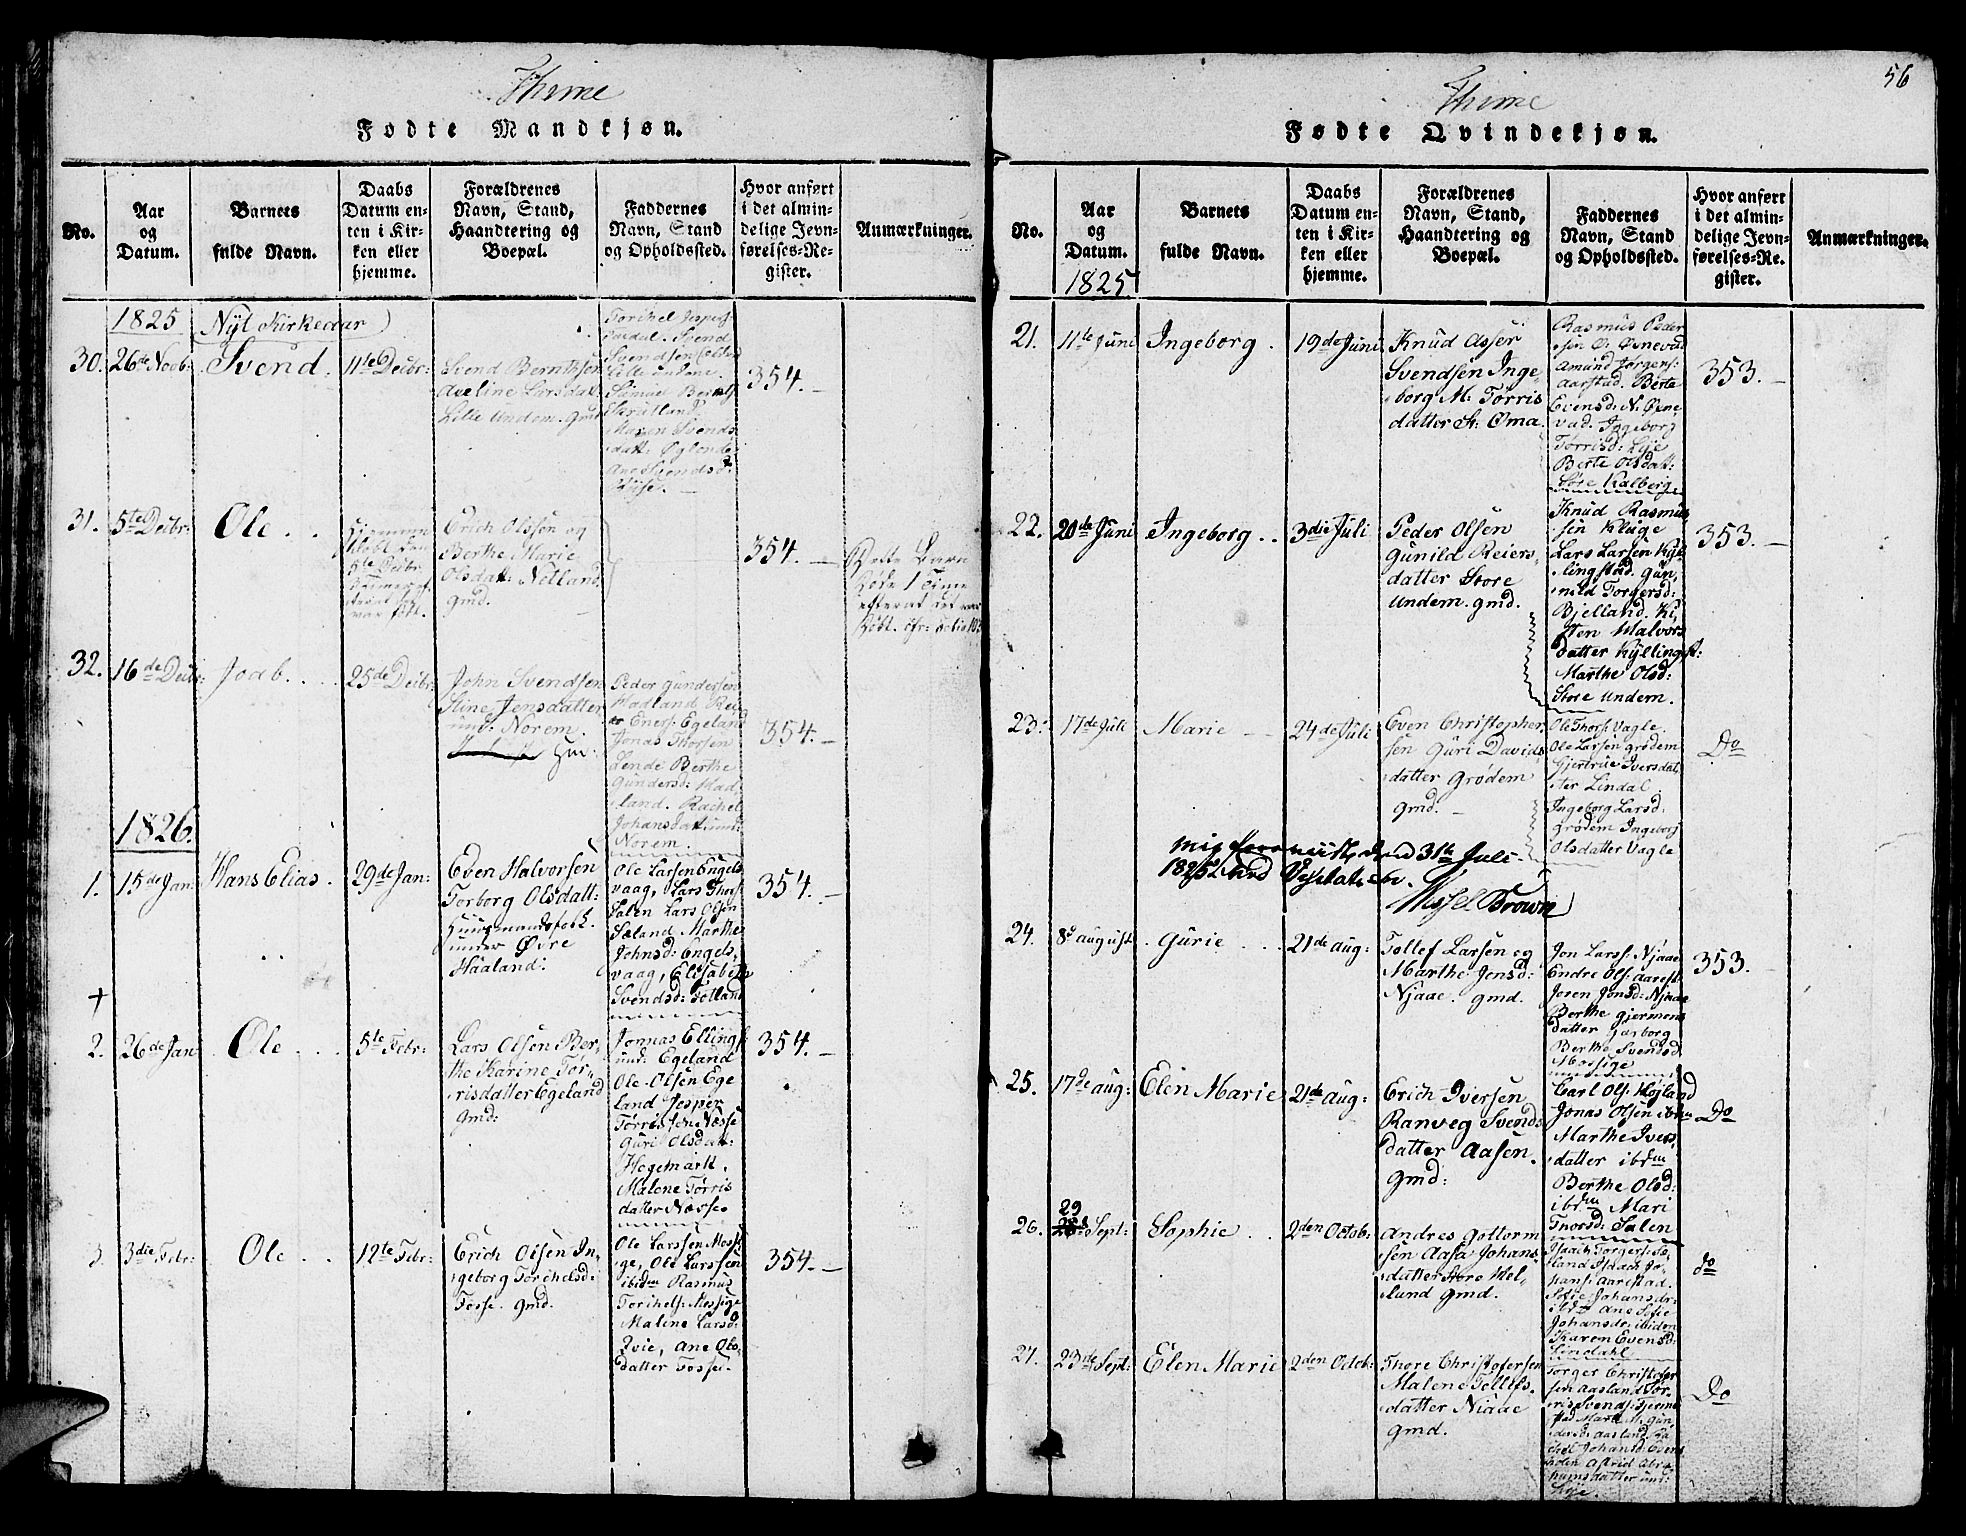 Thime
Fødte Mandkjøn.
No.
Aar
og
Datum.
Barnets
fulde Navn.
Daabs
Datum en-
ten i Kir-
ken eller
hjemme.
Forældrenes
Navn, Stand,
Haandtering og
Boepæl.
Faddernes
Navn, Stand
og Opholdssted.
Hvor anført
i det almin-
delige Jevn-
førelses-Re-
gister.
Anmærkninger.
1825
Nyt Kirkeaar
30.
26de Novb:
Svend.
11te Decbr:
Svend Berntsen
Aveline Larsdat.
Lille Undem. gmd
Svend
Svendsen
Lille Undem.
Maren Svends
datt: Øglend
Ane Svendsd:
354.
31.
5te Decbr:
Ole
Erich Olssen og
Berthe Marie
Olsdat: Netland
gmd.
354.
Dette Barn
Døde 1 Time
efterat det var
Døbt.
32.
16de Decbr:
Joab
25de Decbr:
John Svendsen
Stine Jensdatter
und: Norem.
gm:
Peder Gundersen
Hadland Rei-
er Eners: Egeland
Jonas Thorsen
Lende Berthe
Gundersd: Had
land. Rachel
Johansdat: und:
Norem.
354.
1826.
1.
15de Jan:
Hans Elias.
29de Jan:
Even Halvorsen
Torborg Olsdatt:
Huusmandsfolk
under Øvre
Haaland:
Ole Larsen Engels
vaag, Lars Thors:
Salen Lars Olsen
Søeland Marthe
Johnsd: Engels,
vaag, Elisabeth
Svendsd: Fotland
354.
+
2.
26de Jan
Ole
5te Febr:
Lars Olsen Ber-
the Karine Tør-
risdatter Egeland
gmd:
Jonnas Ellings:
und: Egeland
Ole Olsen Ege
land Jesper
Tørrissen Næsse
Guri Olsdat:
Hogemark.
Malene Tørris
datter Næsse
354.
3.
3die Febr:
Ole
12te Febr:
Erich Olsen In-
geborg Torkelsd:
Fosse. gmd.
Ole Larssen Mossi
ge, Ole Larssen
ibidem Rasmus
Torkels: Mossige
Malene Larsd:
Qvie, Ane Ols-
datter Fosse.
354.
56
Thime
Fødte Qvindekjøn.
No.
Aar
og
Datum.
1825
Barnets
fulde Navn.
Daabs
Datum en-
ten i Kir-
ken eller
hjemme.
Forældrenes
Navn, Stand,
Haandtering og
Boepæl.
Faddernes
Navn, Stand
og Opholdssted.
Hvor anført
i det almin-
delige Jevn-
førelses-Re-
gister.
Anmærkninger.
21.
11te Juni
Ingeborg.
19de Juni
Knud Asser
Svendsen Inge-
borg M: Tørris
datter St: Oma.
Rasmus Peder
sen Ø: Ørnevad
Amund Jørgens:
Aarstad. Berte
Evensd: N: Ørne
vad. Ingeborg
Tørrisd: Lye
Berte Olsdatt:
Store Kalberg
353.
22.
20de Juni
Ingeborg.
3die Juli
Peder Olsen
Gunild Reiers-
datter Store
Undem. gmd.
Knud Rasmus
sen Kluge
Lars Larsen Kyl-
lingstad. Gun,
nild Torgersd:
Bjelland. Ki,
sten Halvors
datter Kyllingst:
Marthe Olsd:
Store Undem.
353.
23.
17de Juli
Marie
24de Juli
Even Christopher
sen Guri Davids
datter Grødem
gmd.
Ole Thors: Vagle
Ole Larsen Grødem
Gjertrue Iversdat,
ter Lindal
Ingeborg Larsd:
Grødem Ingeborg
Olsdatter Vagle
Do
mig foreviist, d 31te Juli
1825 ved Visitatsen.
Brown
24.
8de August
Gurie
21de Aug:
Tollef Larsen og
Marthe Jonsd:
Njaae. gmd.
Jon Larss: Njaae
Endre Ols: Aarest
Joren Jonsd: Njaae
Berthe Gjermens
datter Garborg
Berthe Svendsd
Mossige
353.
25.
17de Aug:
Elen Marie
21de Aug:
Erich Iversen
Ranveg Svends
datter Aasen.
gmd:
Carl Ols: Højland
Jonas Olsen ibm
Marthe Ivers-
datter ibdm
Berthe Olsd:
ibdm Mari
Thorsd: Salen
Do
26.
29
Sept:
Sophie
2den Octob:
Andres Gottorm
sen Aasa Johans
datter Store Hel-
lund gmd.
Isaach Torgers:
land Isaach Jo-
hans: Aarestad.
Sofie Johansdr:
ibdm Ane Sofie
Johansdr: ibidem
Karen Evensd:
Lindahl
do
27.
23de Sept:
Elen Marie
2den Octob:
Thore Christofersen
Malene Tollefs-
datter Niaae
gmd.
Torger Christofer
sen Aasland Tør-
ris Svends:
Aasland.
Johansd:
Astrid Abra-
hamsdatter und:
Lye.
Do